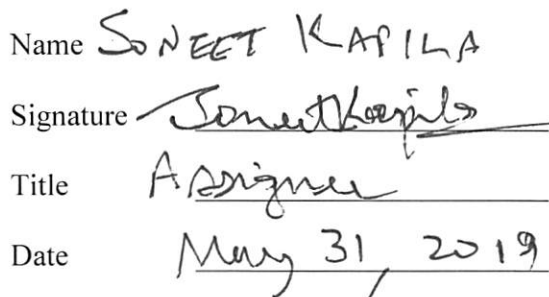 Name SONEET KAPILA
Signature Soneet Kapila
Title Assignee
Date May 31, 2019